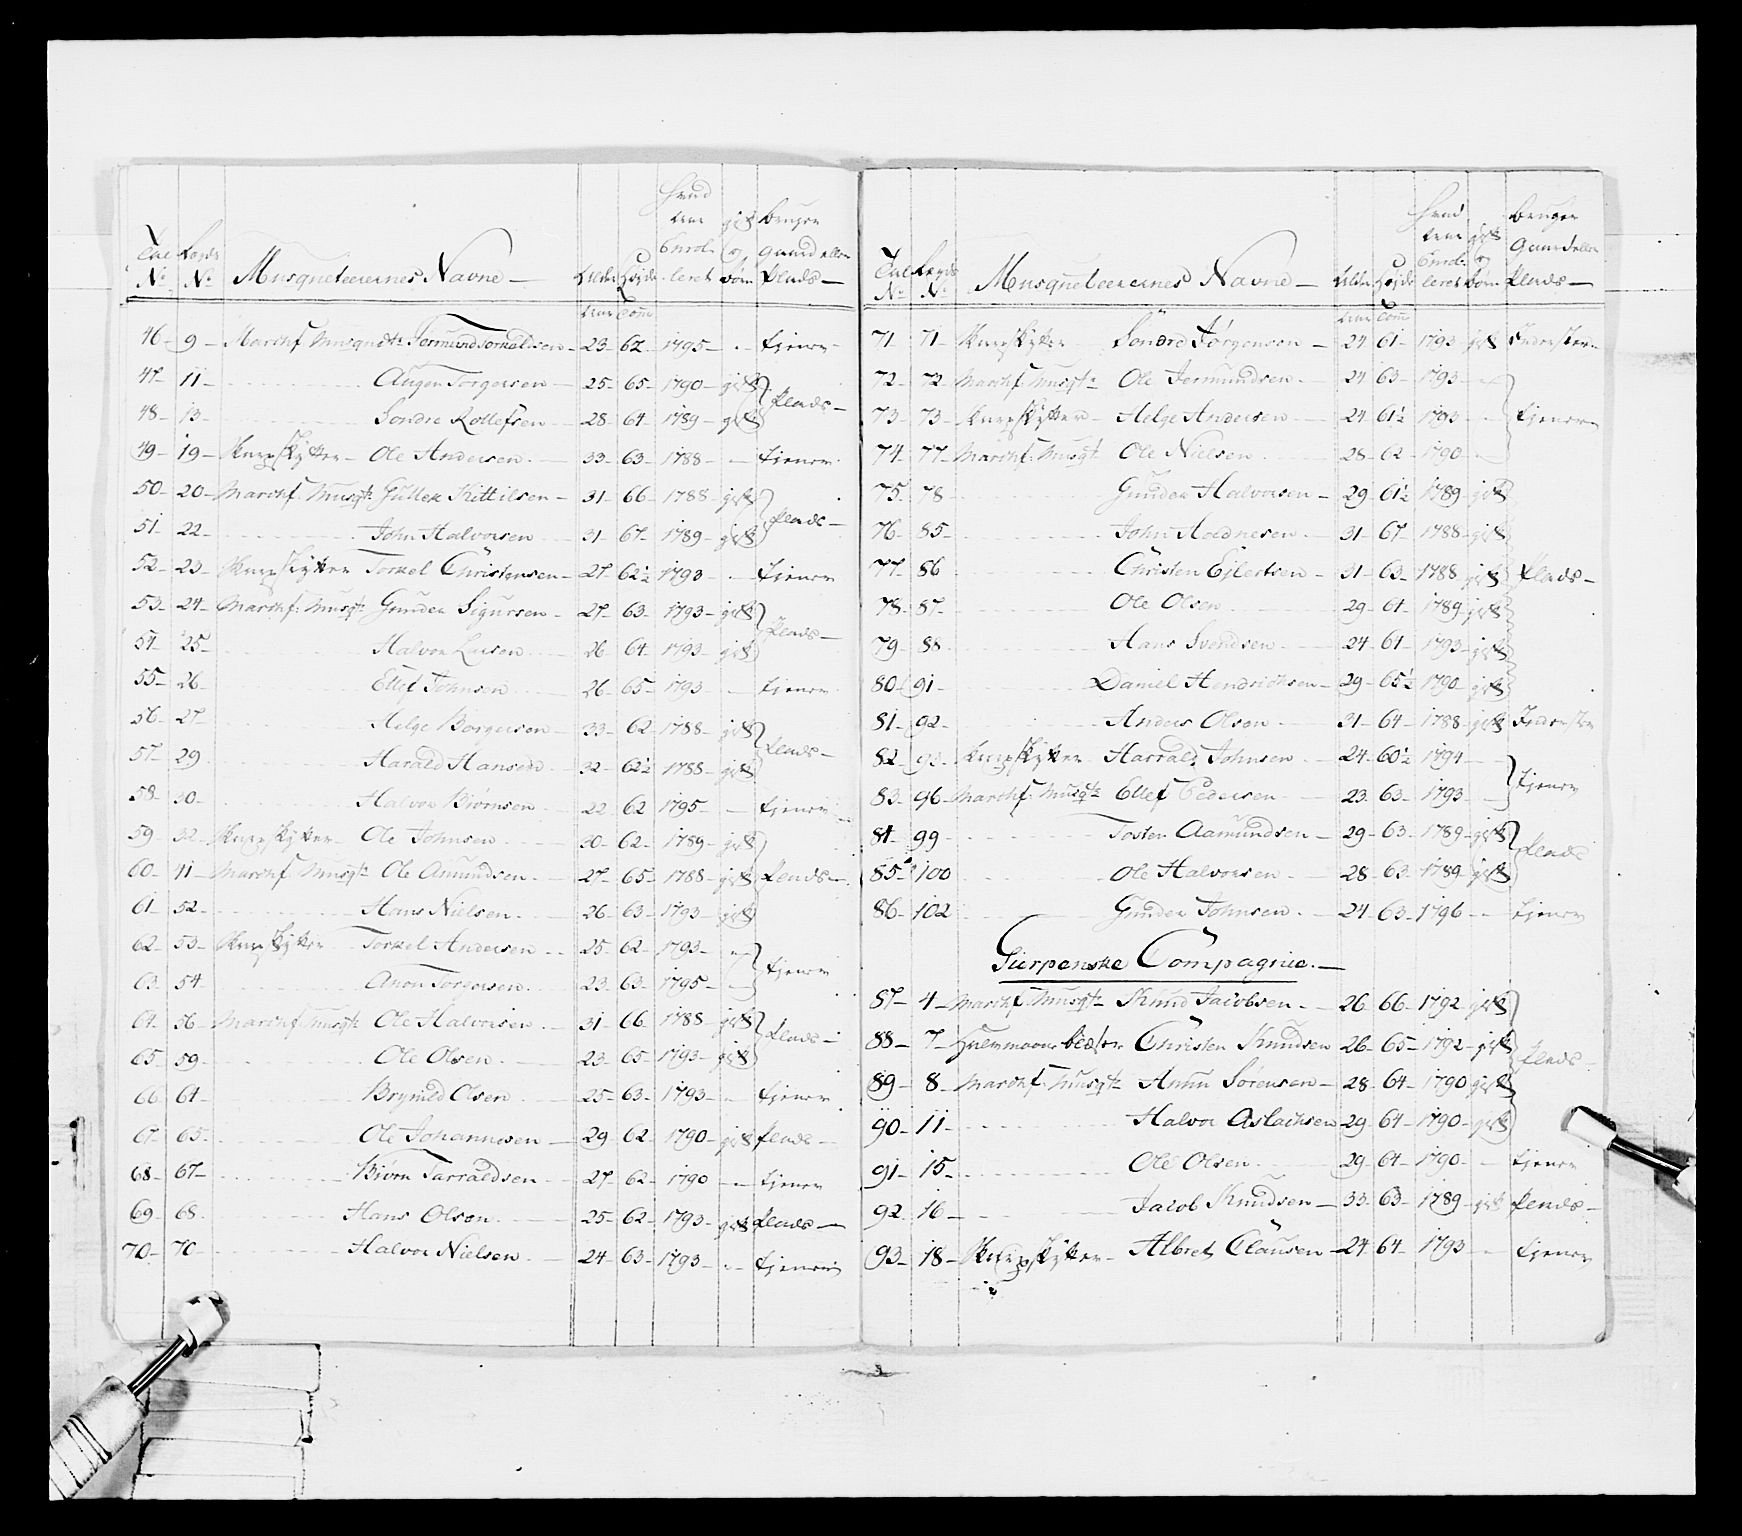 Tal No Lægds No Musqueteerernes Navne — Alder Høyde hvad tiid Enrolleret gift og børn bruger Gaard eller Plads —
46 – 9 – Marchf Musquetr Jermund Torkeldsen – 23 – 62 – 1795 – – tjener
47 – 11 – Augen Torgersen – 25 – 65 – 1790 – gift
Plads –
48 – 13 – Sondre Rollefsen – 28 – 64 – 1789 – gift
49 – 19 – Skarpskytter – Ole Andersen – 33 – 63 – 1788 – – tjener
50 – 20 – Marchf. Musqtr Gullek Kittilsen – 31 – 66 – 1788 – gift
Plads –
51 – 22 – John Halvorsen – 31 – 67 – 1789 – gift
52 – 23 – Skarpskytter Torkel Christensen – 27 – 62½ – 1793 – – tjener
53 – 24 – Marchf. Musqtr Gunder Sigursen – 27 – 63 – 1793 – gift
Plads –
54 – 25 – Halvor Larsen – 26 – 64 – 1793 – gift
55 – 26 – Ellef Johnsen – 26 – 65 – 1793 – – tjener
56 – 27 – Helge Borgersen – 33 – 62 – 1788 – gift
Plads –
57 – 29 – Harald Hansen – 32 – 62½ – 1788 – gift
58 – 30 – Halvor Biörnsen – 22 – 62 – 1795 – – tjener
59 – 32 – Skarpskytter – Ole Johnsen – 30 – 62 – 1789 – gift
60 – 41 – Marchf Musqtr Ole Amundsen – 27 – 65 – 1788 – gift Plads –
61 – 52 – Hans Nielsen – 26 – 63 – 1793 – gift
62 – 53 – Skarpskytter – Torkel Andersen – 25 – 62 – 1793 –
tjener
63 – 54 – Anon Torgersen – 23 – 63 – 1795 –
64 – 56 – Marchf Musqtr Ole Halvorsen – 31 – 66 – 1788 – gift
Plads –
65 – 59 – Ole Olsen – 23 – 65 – 1793 – gift
66 – 61 – Brynild Olsen – 25 – 63 – 1793 – – tjener
67 – 65 – Ole Johannesen – 29 – 62 – 1790 – gift Plads –
68 – 67 – Biörn Tarraldsen – 27 – 62 – 1790 – tjener
69 – 68 – Hans Olson – 25 – 62 – 1793 – gift Plads –
70 – 70 – Halvor Nielsen – 24 – 63 – 1793 – – tjener
Tal No Lægds No Musqueteerernes Navne — Alder Høyde hvad tiid Enrolleret gift og børn bruger Gaard eller Plads —
71 – 71 – Skarpskytter Söndre Jörgensen – 24 – 61 – 1793 – gift
72 – 72 – Marchf. Musqtr Ole Jermundsen – 24 – 63 – 1793 –
73 – 73 – Skarpskytter – Helge Andersen – 24 – 61½ – 1793 – tjener
74 – 77 – Marchf. Musqt. Ole Nielsen – 28 – 62 – 1790 –
75 – 78 – Gunder Halvorsen – 29 – 61½ – 1789 – gift
76 – 85 – John Aadnesen – 31 – 67 – 1788 – gift
77 – 86 Christen Ejlertsen – 31 – 63 – 1788 gift Plads –
78 – 87 – Ole Olsen – 29 – 61 – 1789 gift
79 – 88 – Hans Svendsen – 24 – 61 – 1793 – gift
80 – 91 – Daniel Hendrichsen – 29 – 65½ – 1790 – gift
81 – 92 – Anders Olson – 31 – 64 – 1788 – gift
82 – 93 – Skarpskytter Harrald Johnsen – 24 – 60½ – 1794 –
tjener
83 – 96 – Marchf. Musqtr Ellef Pedersen – 23 – 63 – 1793 –
84 – 99 – Tosten Aamundsen – 29 – 63 – 1789 – gift
Plads
85 – 100 Ole Halvorsen – 28 – 63 – 1789 – gift
86 – 102 Gunder Johnsen – 24 – 63 – 1796 – – tjener
Gierpenske Compagnie. —
87 – 4 – Marchf. Musqtr Knud Jacobsen – 26 – 66 – 1792 – gift
88 – 7 – Christen Knudsen 26 – 65 – 1792 – gift Plads –
89 – 8 – Marchf. Musqtr Anun Sörensen – 28 – 64 – 1790 gift
90 – 11 – Halvor Aslachsen 29 – 64 – 1790 – gift
91 – 15 – Ole Olsen – 29 – 64 – 1790 – – tjener
92 – 16 – Jacob Knudsen – 33 – 63 – 1789 – gift Plads –
93 – 18 – Skarpskytter – Albret Clausen – 24 – 64 – 1793 – tjener